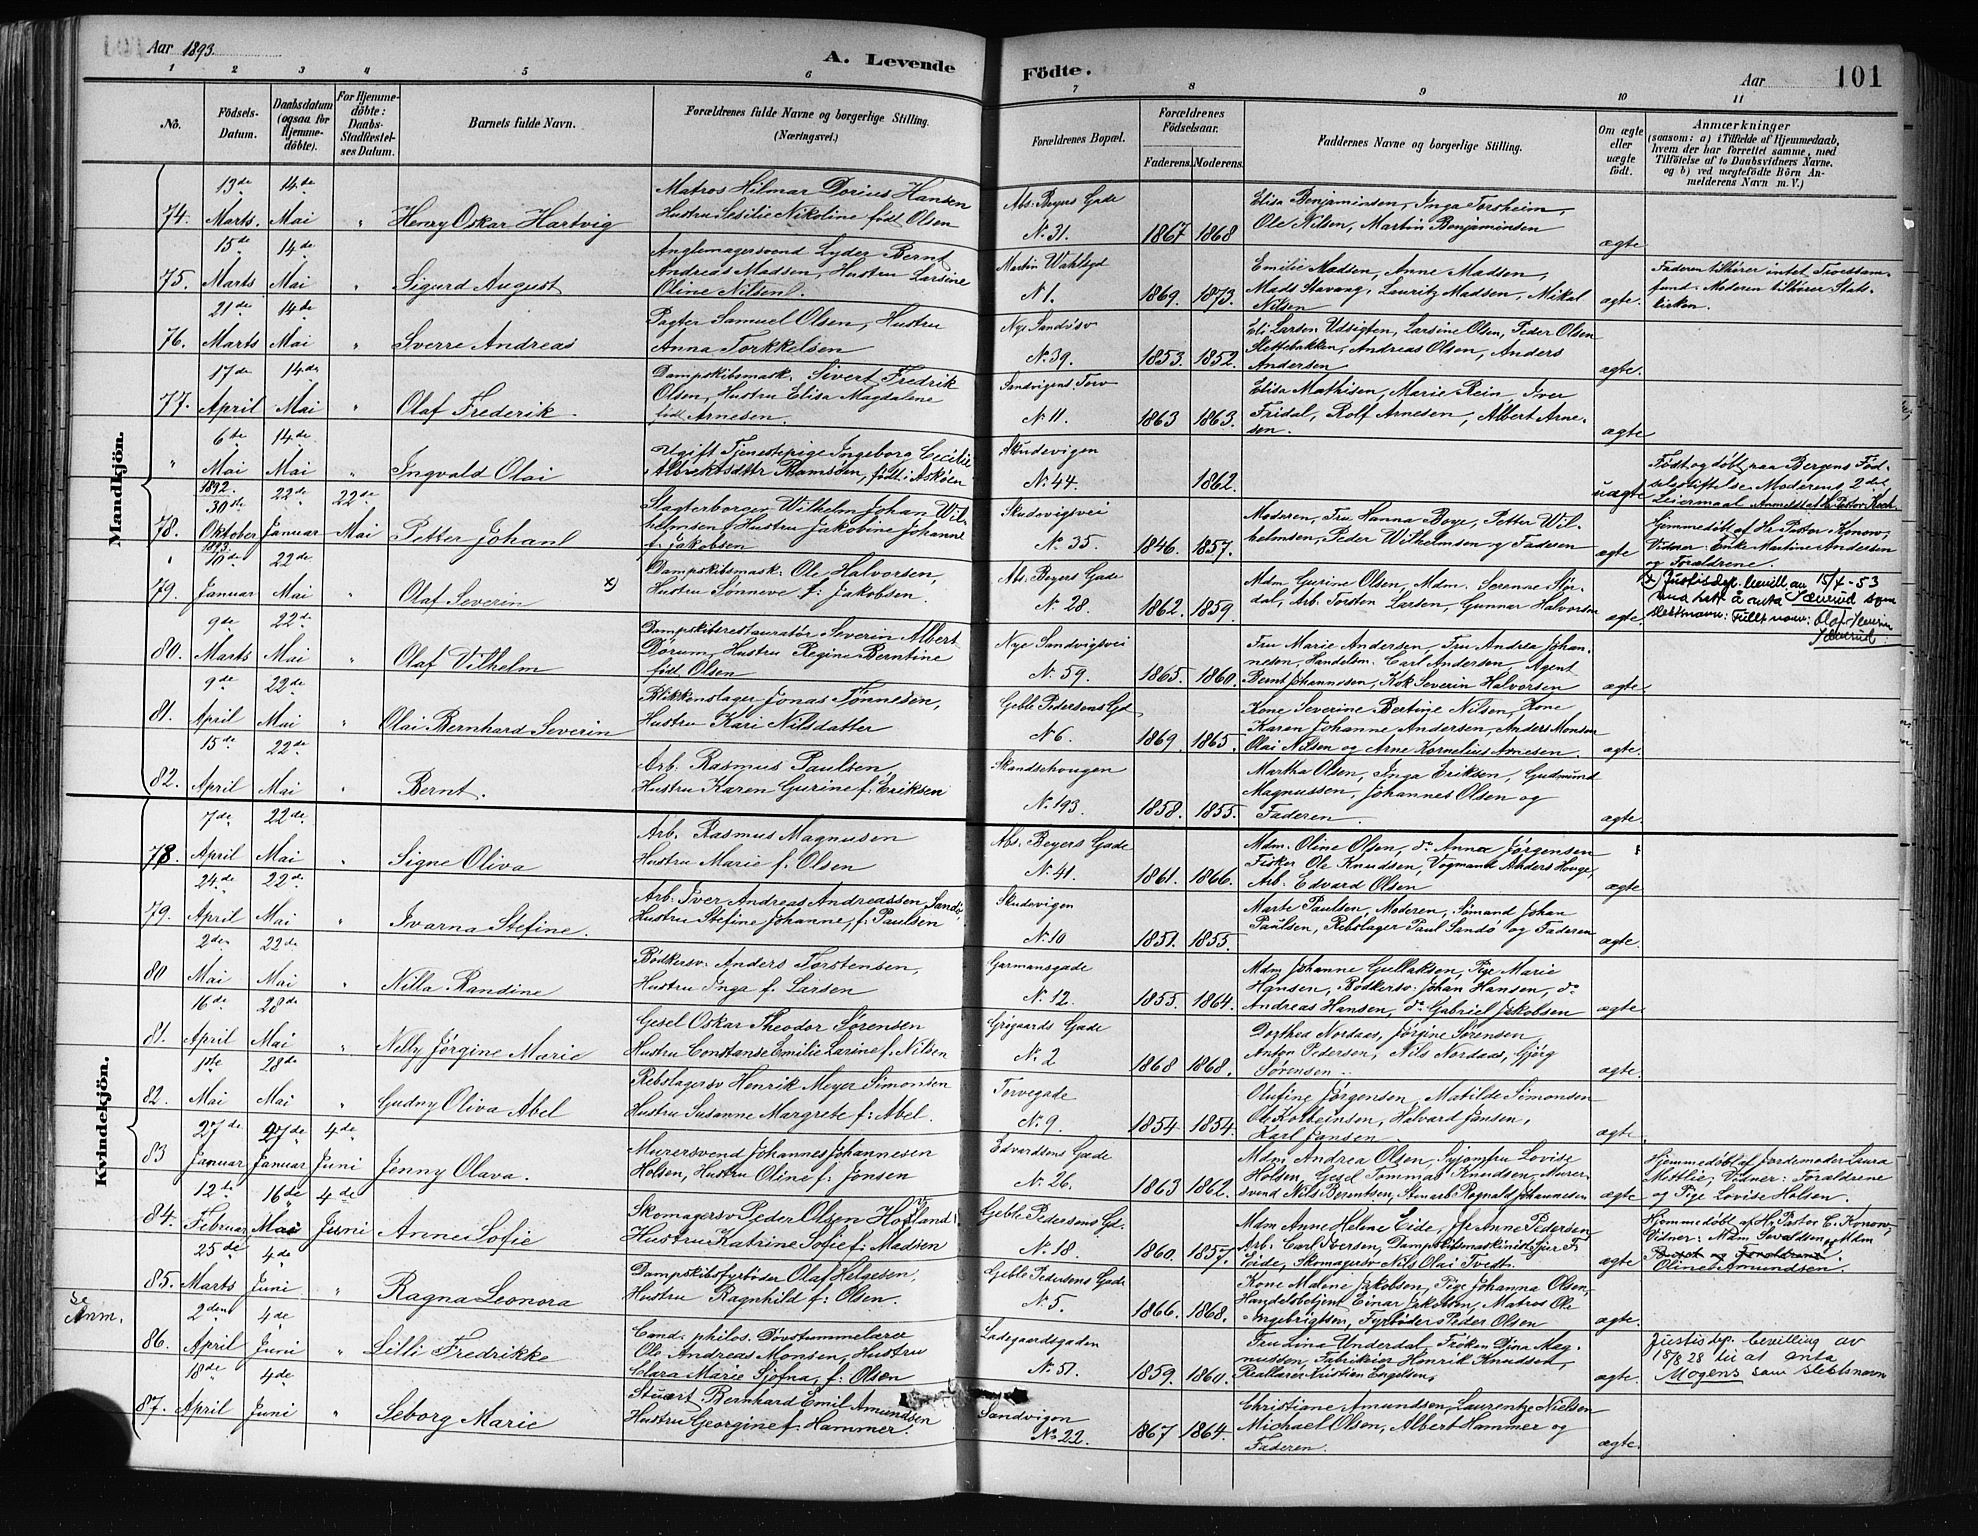 Aar 1893.
A. Levende Födte.
Aar 101
1 2 3 4 5 6 7 8 9 10 11
No.
Födsels-Datum.
Daabsdatum (ogsaa for Hjemme-döbte).
For Hjemme-döbte: Daabs-Stadfæstel-ses Datum.
Barnets fulde Navn.
Forældrenes fulde Navne og borgerlige Stilling. (Næringsvei.)
Forældrenes Bopæl.
Forældrenes Födselsaar.
Faderens. Moderens.
Faddernes Navne og borgerlige Stilling.
Om ægte eller uægte födt.
Anmærkninger
(saasom: a) i Tilfælde af Hjemmedaab, hvem der har forrettet samme, med Tilföielse af to Daabsvidners Navne, og b) ved uægtefödte Börn An-melderens Navn m. V.)
Mandkjön.
74. 13de Marts. 14de Mai " Henry Oskar Hartvig
Matros Hilmar Dorius Hansen
Hustru Sesilie Nikoline födt Olsen
Abs. Beyers Gade No. 31. 1867 1868
Elisa Benjaminsen, Inga Torsheim,
Ole Nilsen, Martin Benjaminsen
ægte
75. 15de Marts 14de Mai " Sigurd August
Anglemagersvend Lyder Bernt
Andreas Madsen, Hustru Larsine
Oline Nilsen.
Martin No 1. 1869. 1873.
Emilie Madsen, Anne Madsen,
Mads Stavang, Lauritz Madsen, Mikal
Nilsen
ægte.
Faderen tilhører intet Troessam-
fund. Moderen tilhører Stats-
kirken.
76. 21de Marts 14de Mai " Sverre Andreas
Pagter Samuel Olsen, Hustru
Anna Torkkelsen
Nye Sandvigsv No. 39. 1853. 1852.
Eli Larsen Udsigten, Larsine Olsen, Peder Olsen
Slettebakken, Andreas Olsen, Anders
Andersen
ægte.
77. 17de April 14de Mai " Olaf Frederik.
Dampskibsmask. Sivert Fredrik
Olsen, Hustru Elisa Magdalene
född Arnesen.
Sandvigens Torv No 11. 1863 1863.
Elisa Mathisen, Marie Rein, Iver
Fridal, Rolf Arnesen, Albert Arne-
sen.
ægte
" 6te Mai 14de Mai " Ingvald Olai
Ugift Tjenestepige Ingeborg Cecilie
Albrektsdttr Ramsøen, född i Askøen
Skudevigen No. 44. 1862.
uægte
Født og døbt paa Bergens Fød-
selsstiftelse. Moderens 2det
Leiermaal. Anmeldt af Hr. Pastor Koch
78. 1892. 30te Oktober 22de Januar 22de Mai Petter Johan
Slagterborger Wilhelm Johan Wil-
helmsen, Hustru Jakobine Johanne
f. Jakobsen
Skudevigsvei No. 35. 1846. 1857.
Moderen, Fru Hanna Boye, Petter Wil-
helmsen, Peder Wilhelmsen og Faderen
ægte
Hjemmedøbt af Hr Pastor Konow,
Vidner: Enke Martine Andersen
og Forældrene.
79. 1893. 10de Januar 22de Mai " Olaf Severin x)
Dampskibsmask. Ole Halvorsen,
Hustru Sønneve f: Jakobsen.
Abs. Beyers Gade No. 28. 1862. 1859.
Mdm Gurine Olsen, Mdm. Serense Ør-
dal, Arb. Torsten Larsen, Gunnar Halvorsen
ægte
x) Justisdep. bevill av 15/4-53
med rett å anta Sæverud som
slektsnavn: Fullt navn: Olaf Severin
Sæverud.
80. 9de Marts 22de Mai " Olaf Vilhelm
Dampskibsrestauratør Severin Albert
Dörum, Hustru Regine Berntine
född Olsen
Nye Sandvigsvei No. 59. 1865. 1860.
Fru Marie Andersen, Fru Andrea Johan-
nesen, Handelsm. Carl Andersen, Agent
Bernt Johannesen, Kok Severin Halvorsen
ægte.
81. 9de April 22de Mai " Olai Bernhard Severin
Blikkenslager Jonas Tønnesen,
Hustru Kari Nilsdatter
Geble Pedersens Gd No 6. 1869. 1865.
Kone Severine Bertine Nilsen, Kone
Karen Johanne Andersen, Anders Monsen
Olai Nilsen og Arne Kornelius Arnesen.
ægte.
82. 15de April 22de Mai " Bernt.
Arb. Rasmus Paulsen,
Hustru Karen Gurine f. Eriksen
Skandsehougen No. 193. 1858. 1855.
Martha Olsen, Inga Eriksen, Gudmund
Magnussen, Johannes Olsen og
Faderen.
ægte.
Kvindekjön.
78. 7de April 22de Mai " Signe Oliva
Arb. Rasmus Magnusen
Hustru Marie f. Olsen
Abs. Beyers Gade No. 41. 1861. 1866.
Mdm. Oline Olsen, do Anna Jørgensen
Fisker Ole Knudsen, Vognmand Anders Houge,
Arb. Edvard Olsen
ægte
79. 24de April 22de Mai " Ivarna Stefine.
Arb. Iver Andreas Andreassen Sandø,
Hustru Stefine Johanne, f. Paulsen
Skudevigen No. 10 1851. 1855.
Marte Paulsen, Moderen, Sømand Johan
Paulsen, Rebslager Paul Sandö og Faderen
ægte.
80 2den Mai 22de Mai " Nilla Randine
Bødkersv. Anders Torstensen,
Hustru Inga f. Larsen
Garmansgade No. 12. 1855. 1864.
Mdm Johanne Gullaksen, Pige Marie
Hansen, Bødkersv. Johan Hansen, do
Andreas Hansen, do Gabriel Jakobsen
ægte.
81. 16de April 28de Mai " Nelly Jørgine Marie
Gesel Oskar Theodor Sørensen
Hustru Constanse Emilie Larine f. Nilsen
Griegaards Gade No. 2 1868 1868.
Dorthea Nordaas, Jørgine Sørensen
Anton Pedersen, Nils Nordaas, Gjörg
Sørensen.
ægte.
82. 1ste Mai 28de Mai " Gudny Oliva Abel
Rebslagersv Henrik Meyer Simonsen
Hustru Susanne Margrete f. Abel.
Torvegade No. 9. 1854 1854.
Olufine Jørgensen, Matilde Simonsen
Ole Kolbeinsen, Halvard Jansen,
Karl Jansen
ægte.
83 27de Januar 27de Januar 4de Juni Jenny Olava.
Murersvend Johannes Johannesen
Holsen, Hustru Oline f. Jonsen
Edvardsens Gade No. 26. 1863 1862.
Mdm Andrea Olsen, Syjomfru Lovise
Holsen, Gesel Tommas Knudsen, Murer-
svend Nils Berentsen, Stenarb. Rognald Johannesen
ægte
Hjemmedøbt af Jordemoder Laura
Mettlie, Vidner: Forældrene
og Pige Lovise Holsen.
84. 12te Februar 16de Mai 4de Juni Anne Sofie
Skomagersv Peder Olsen Hosland
Hustru Katrine Sofie f. Madsen
Geble Pedersens Gd. No. 18. 1860. 1857.
Mdm Anne Helene Eide, Fr Anne Pedersen,
Arb. Carl Iversen, Dampskibsmaskinist Sjur F
Eide, Skomagersv Nils Olai Tvedt.
ægte
Hjemmedøbt af Hr Pastor E. Konow,
Vidner: Mdm Sevaldsen og Mdm
Oline Amundsen.
85. 25de Marts 4de Juni " Ragna Leonora
Dampskibsfyrbøder Olaf Helgesen,
Hustru Ragnhild f. Olsen.
Geble Pedersens Gade No. 5. 1866. 1868.
Kone Malene Jakobsen, Pige Johanna Olsen,
Handelsbetjent Einar Jakobsen, Matros Ole
Ingebrigtsen, Fyrbøder Peder Olsen
ægte.
Se Anm.
86. 2den April 4de Juni " Lilli Fredrikke
Cand. philos. Døvstummelærer
Ole Andreas Monsen, Hustru
Clara Marie Sjofna, f. Olsen
Ladegaardsgaden No. 51. 1859. 1860.
Fru Lina Underdal, Frøken Dina Mag-
nussen, Fabrikeier Henrik Knudsen,
Reallærer Kristian Engelsen,
ægte.
Justisdep. bevilling av
18/8 28 til at anta
Mogens som slektsnavn
87. 18de April 4de Juni " Seborg Marie
Stuart Bernhard Emil Amundsen
Hustru Georgine f. Hammer.
Sandvigen No. 22. 1867 1864.
Christiane Amundsen, Laurentze Nielsen
Michael Olsen, Albert Hammer og
Faderen.
ægte.